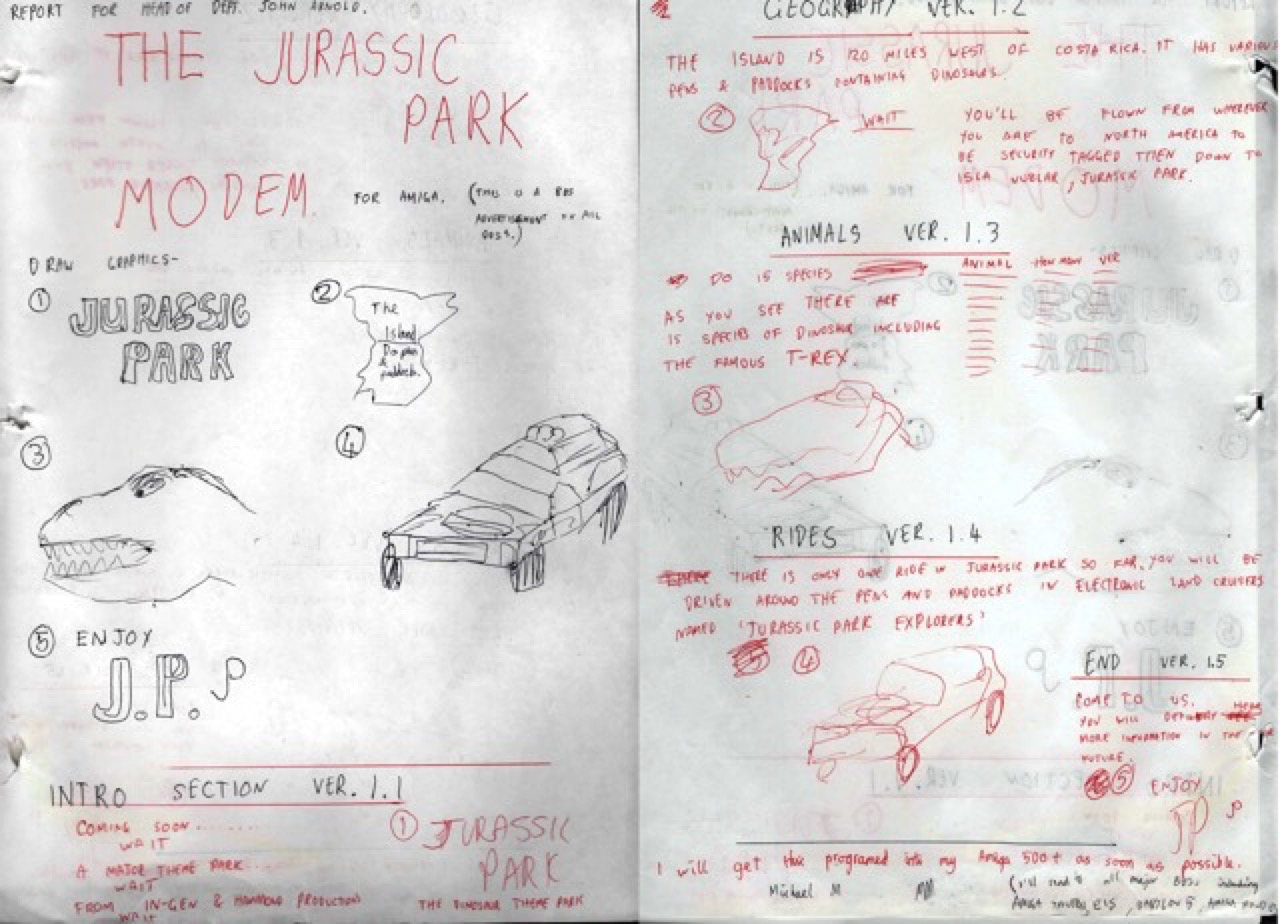 REPORT FOR HEAD OF DEPT. JOHN ARNOLD.
THE JURASSIC
PARK
MODEM
FOR AMIGA. (THIS IS A BBS
ADVERTISEMENT ON ALL
DRAW GRAPHICS-
1
JURASSIC
PARK
2
The
Island
3
4
5 ENJOY
J.P.
INTRO SECTION VER. 1.1
COMING SOON........
WAIT
A MAJOR THEME PARK....
WAIT
FROM IN-GEN & HAMMOND PRODUCTIONS
WAIT
1 JURASSIC
PARK
THE DINOSAUR THEME PARK
GEOGRAPHY VER. 1.2
THE ISLAND IS 120 MILES WEST OF COSTA RICA. IT HAS VARIOUS
PENS & PADDOCKS CONTAINING DINOSAURS.
2
WAIT
YOU'LL BE FLOWN FROM WHEREVER
YOU ARE TO NORTH AMERICA TO
BE SECURITY TAGGED THEN DOWN TO
ISLA NUBLAR, JURASSIC PARK.
ANIMALS VER. 1.3
DO 15 SPECIES
ANIMAL HOW MANY VER
AS YOU SEE THERE ARE
15 SPECIES OF DINOSAUR INCLUDING
THE FAMOUS T-REX.
3
RIDES VER. 1.4
THERE IS ONLY ONE RIDE IN JURASSIC PARK SO FAR. YOU WILL BE
DRIVEN AROUND THE PENS AND PADDOCKS IN ELECTRONIC LAND CRUISERS
NAMED 'JURASSIC PARK EXPLORERS'
4
END VER. 1.5
COME TO US.
YOU WILL GET
MORE INFORMATION IN THE
FUTURE.
5 ENJOY
JP
I will get this programed into my Amiga 500+ as soon as possible.
Michael M
(I'll send it all major BBS's including